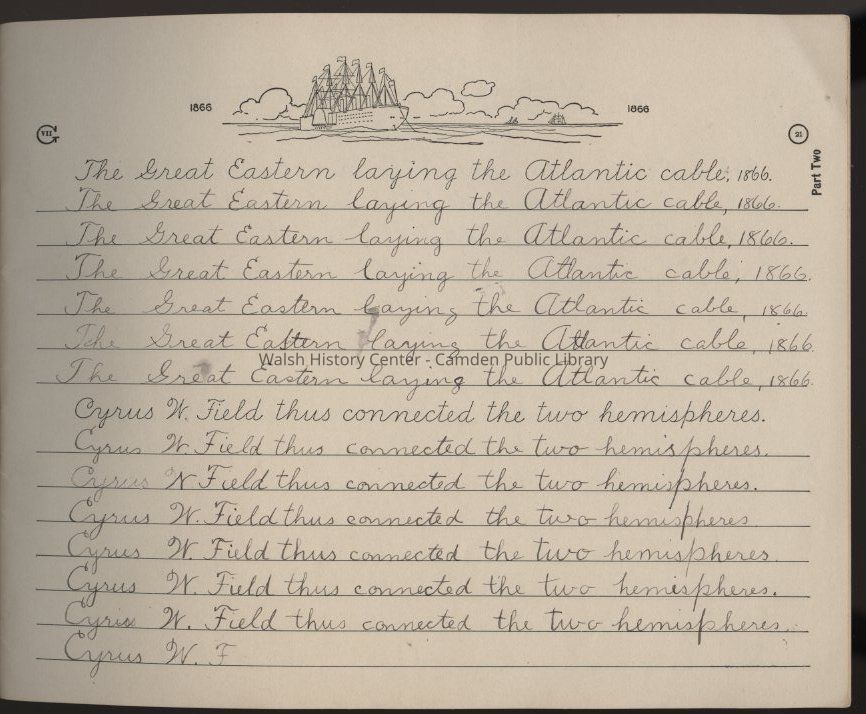 1866 1866
VII 21
Part Two
The Great Eastern laying the Atlantic cable, 1866.
The Great Eastern laying the Atlantic cable, 1866.
The Great Eastern laying the Atlantic cable, 1866.
The Great Eastern laying the Atlantic cable, 1866.
The Great Eastern laying the Atlantic cable, 1866
The Great Eastern laying the Atlantic cable, 1866
Walsh History Center - Camden Public Library
The Great Eastern laying the Atlantic cable, 1866.
Cyrus W. Field thus connected the two hemispheres.
Cyrus W. Field thus connected the two hemispheres.
Cyrus W Field thus connected the two hemispheres.
Cyrus W. Field thus connected the two hemispheres
Cyrus W. Field thus connected the two hemispheres.
Cyrus W. Field thus connected the two hemispheres.
Cyrus W. Field thus connected the two hemispheres.
Cyrus W. F